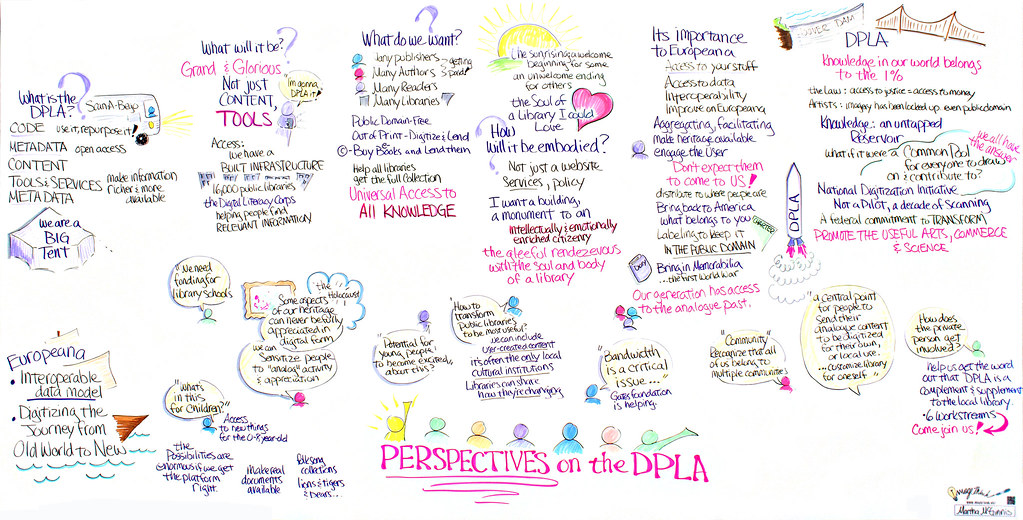 What is the
DPLA?
Scan-A-Bago
CODE use it, repurpose it!
METADATA open access
CONTENT
TOOLS & SERVICES make information
richer & more
available
METADATA
we are a
BIG
TENT
What will it be?
Grand & Glorious
Not just
CONTENT,
TOOLS
"I'm gonna
DPLA it!"
Access:
we have a
BUILT INFRASTRUCTURE
16,000 public libraries
the Digital Literacy Corps
helping people find
RELEVANT INFORMATION
What do we want?
Many publishers
Many Authors
getting
paid!
Many Readers
Many Libraries
Public Domain-Free
Out of Print - Digitize & Lend
© - Buy Books and Lend them
Help all libraries
get the full Collection
Universal Access to
All KNOWLEDGE
The sun rising, a welcome
beginning for some
an unwelcome ending
for others
the Soul of
a Library I could
Love
How
will it be embodied?
Not just a website
Services, policy
I want a building,
a monument to an
Intellectually & emotionally
enriched citizenry
the gleeful rendezvous
with the soul and body
of a library
Its importance
to Europeana
Access to your stuff
Access to data
Interoperability
Improve on Europeana
Aggregating, facilitating
Make heritage available
engage the User
Don't expect them
to come to US!
distribute to where people are
Bring back to America
what belongs to you
Labeling to keep it
IN THE PUBLIC DOMAIN
CHARTER
DIARY
Bring in Memorabilia
...the first World War
Our generation has access
to the analogue past.
HOOVER DAM
DPLA
Knowledge in our world belongs
to the 1%
the Law: access to justice = access to money
Artists: imagery has been locked up. even public domain
Knowledge: an untapped
Reservoir
we all have
the answer
What if it were a Common Pool
for everyone to draw
on & contribute to?
National Digitization Initiative
Not a Pilot, a decade of Scanning
A federal commitment to TRANSFORM
PROMOTE THE USEFUL ARTS, COMMERCE
& SCIENCE
DPLA
Europeana
• Interoperable
data model
• Digitizing the
Journey from
Old World to New
"We need
funding for
library schools"
the
Holocaust
"Some aspects
of our heritage
can never be fully
appreciated in
digital form"
we can
Sensitize people
to "analog" activity
& appreciation
"what's
in this
for Children?"
Access
to new things
for the 0-8 year old
the
Possibilities are
enormous if we get
the platform
right.
Make real
documents
available
folk song
collections
lions & tigers
& bears...
"Potential for
young people
to become excited
about this?"
"How to
transform
public libraries
to be most useful?"
we can include
user-created content
it's often the only local
cultural institutions
Libraries can share
how they're changing
"Bandwidth
is a critical
issue..."
Gates foundation
is helping.
"Community
Recognize that all
of us belong to
multiple communities"
"a central point
for people to
send their
analogue content
to be digitized
for their own,
or local use.
...customize library
for oneself"
How does
the private
person get
involved?
help us get the word
out that DPLA is a
complement & supplement
to the local library.
• 6 workstreams
Come join us!
PERSPECTIVES on the DPLA
ImageThink
Martha McGinnis